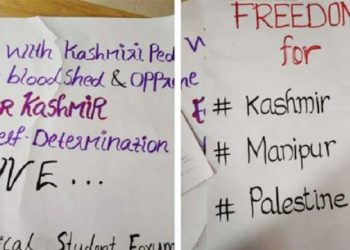 with Kashmiri
bloodshed &
KASHMIR
Self-Determination
...
Student Forum
FREEDOM
for
# Kashmir
# Manipur
# Palestine